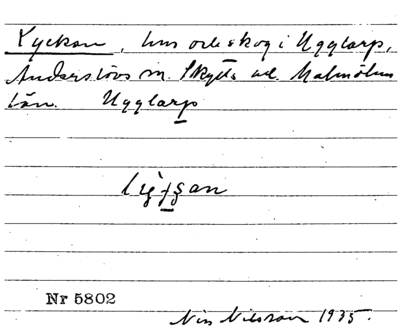 Tyckan, hus och skog i Ugglarp,
Anderslövs sn. Skytts hd. Malmöhus
län. Ugglarp
Nr 5802
Nils Nilsson 1935.